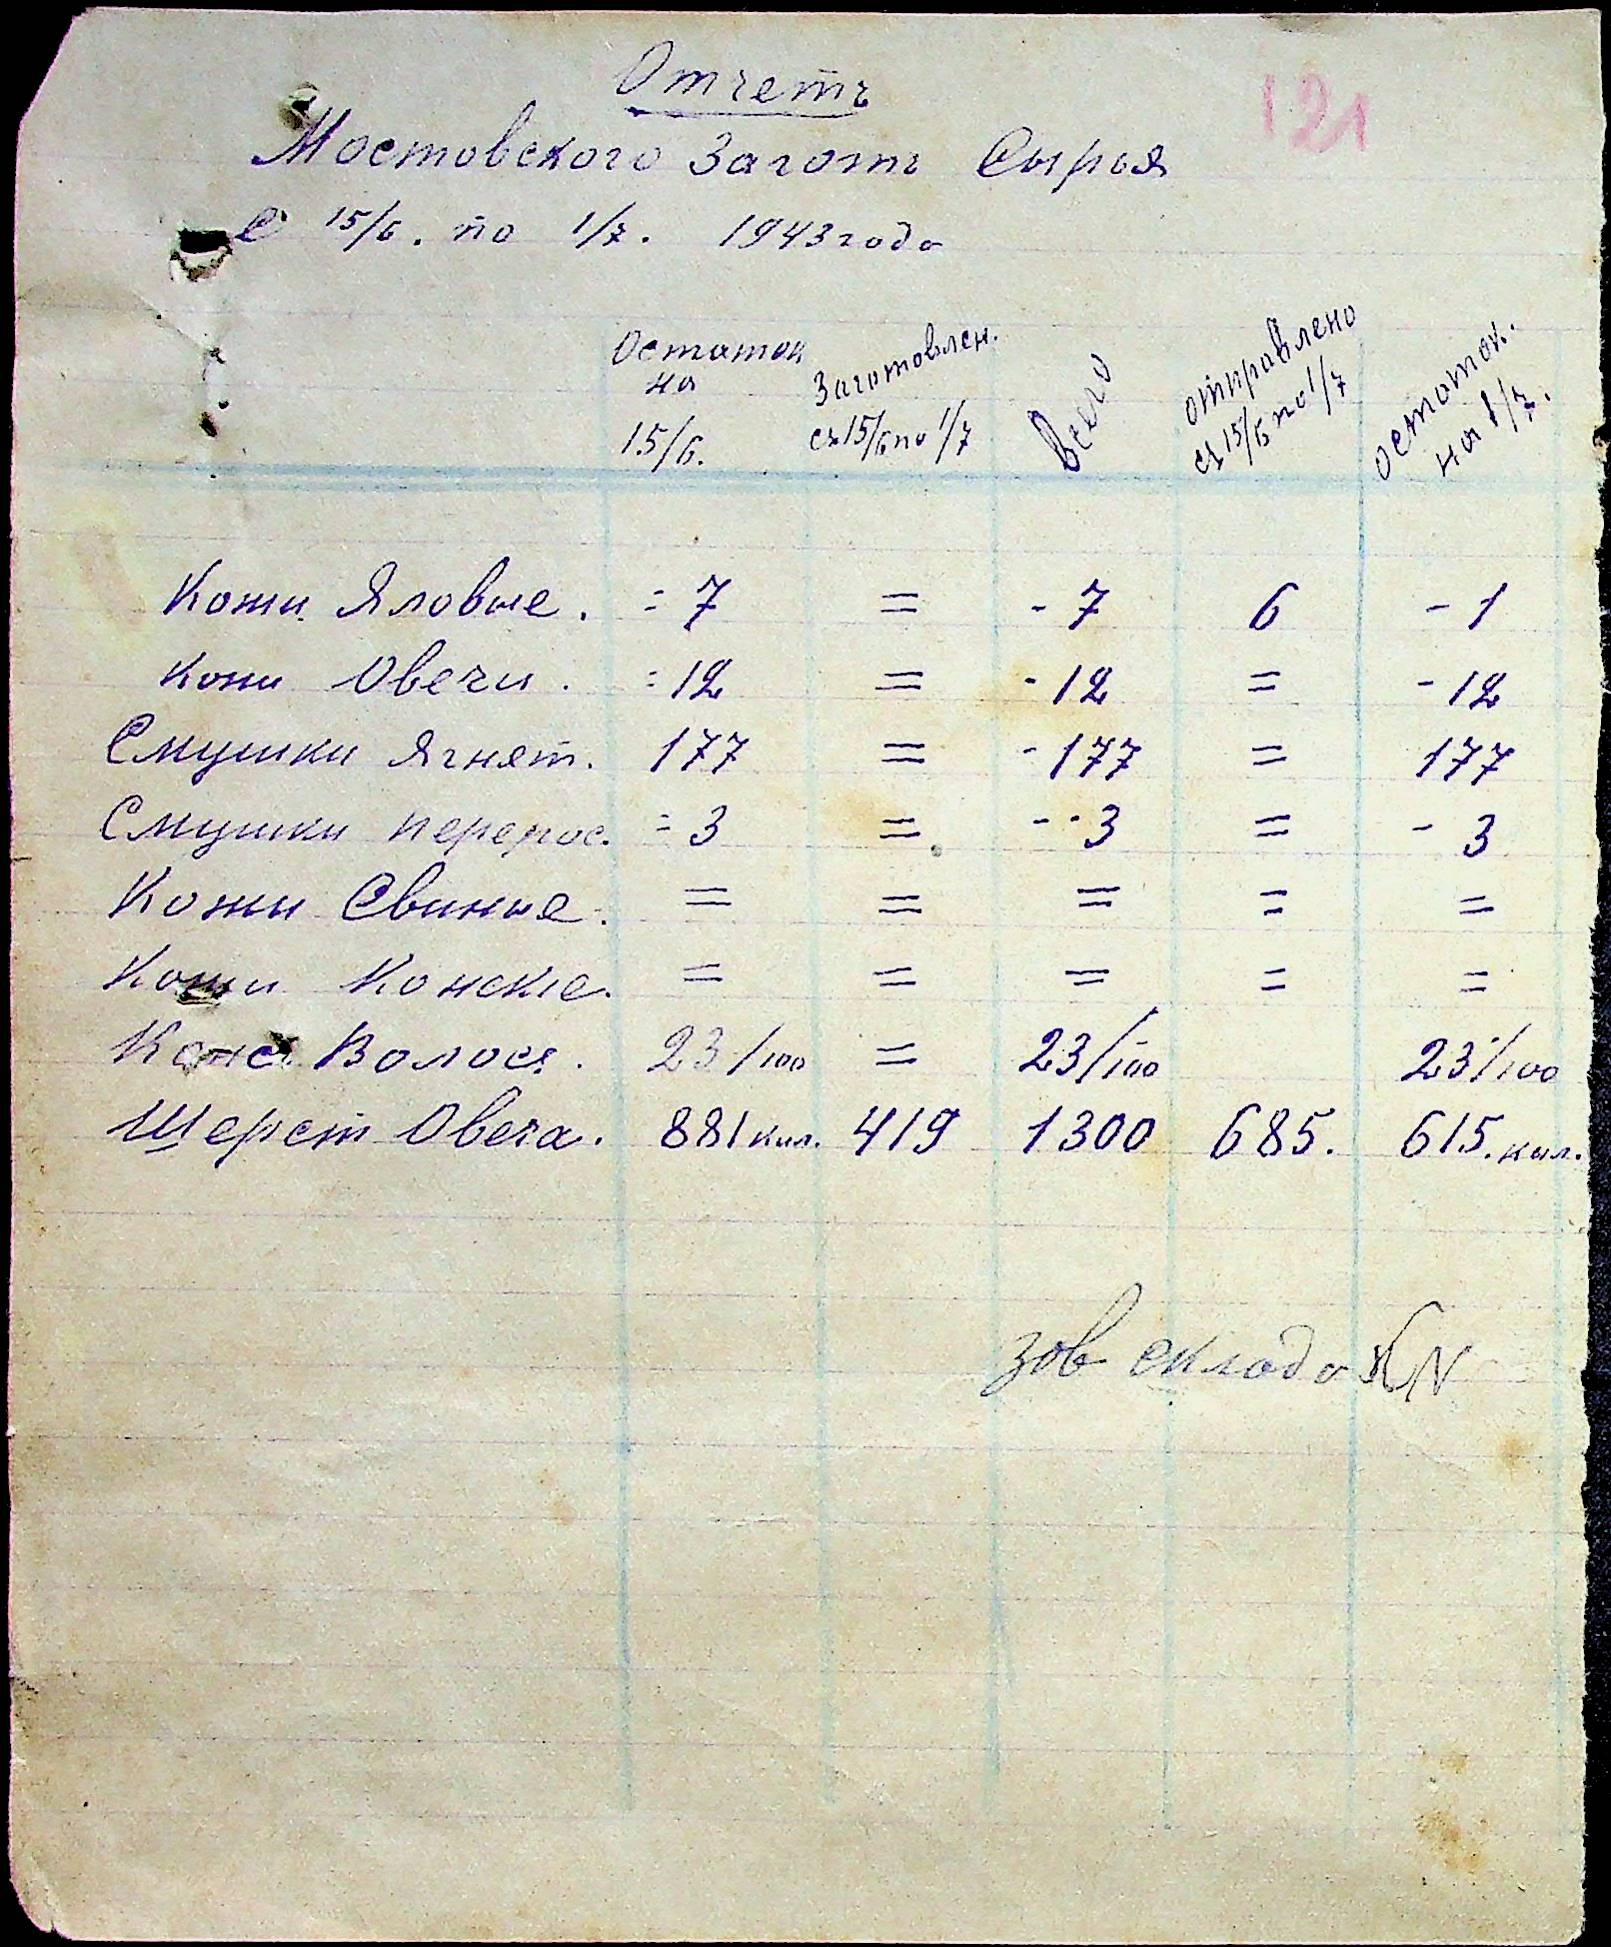 Отчетъ
121
Мостовского Заготъ Сырья
С 15/6. по 1/7. 1943 года
Остаток на 15/6. Заготовлен. съ 15/6 по 1/7 Всего отправлено съ 15/6 по 1/7 остоток. на 1/7.
Кожи Яловые. = 7 = - 7 6 - 1
Кожи Овечи. = 12 = - 12 = - 12
Смушки Ягнят. 177 = - 177 = 177
Смушки перерос. = 3 = - - 3 = - 3
Кожи Свиные. = = = = =
Кожи Конские. = = = = =
Волося. 23/100 = 23/100 23/100
Шерст Овеча. 881 кил. 419 1300 685. 615. кил.
Зав склада